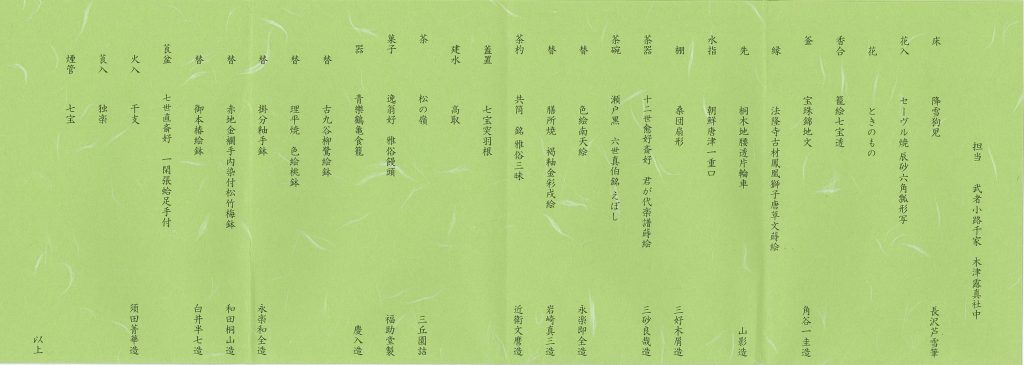 担当　武者小路千家　木津露真社中
床　降雪狗児　長沢芦雪筆
花入　セーヴル焼　辰砂六角瓢形写
花　ときのもの
香合　籠絵七宝透
釜　宝珠錦地文　角谷一圭造
縁　法隆寺古材鳳凰獅子唐草文蒔絵
先　桐木地腰透片輪車　山影造
水指　朝鮮唐津一重口
棚　桑団扇形　三好木屑造
茶器　十二世愈好斎好　君が代楽譜蒔絵　三砂良哉造
茶碗　瀬戸黒　六世真伯銘　えぼし
替　色絵南天絵　永楽即全造
替　膳所焼　褐釉金彩戌絵　岩崎真三造
茶杓　共筒　銘　雅俗三昧　近衛文麿造
蓋置　七宝突羽根
建水　高取
茶　松の嶺　三丘園詰
菓子　逸翁好　雅俗饅頭　福助堂製
器　青楽鶴亀食籠　慶入造
替　古九谷柳鷺絵鉢
替　理平焼　色絵桃鉢
替　掛分釉手鉢　永楽和全造
替　赤地金襴手内染付松竹梅鉢　和田桐山造
替　御本椿絵鉢　白井半七造
莨盆　七世直斎好　一閑張給足手付
火入　干支　須田菁華造
莨入　独楽
煙管　七宝
以上